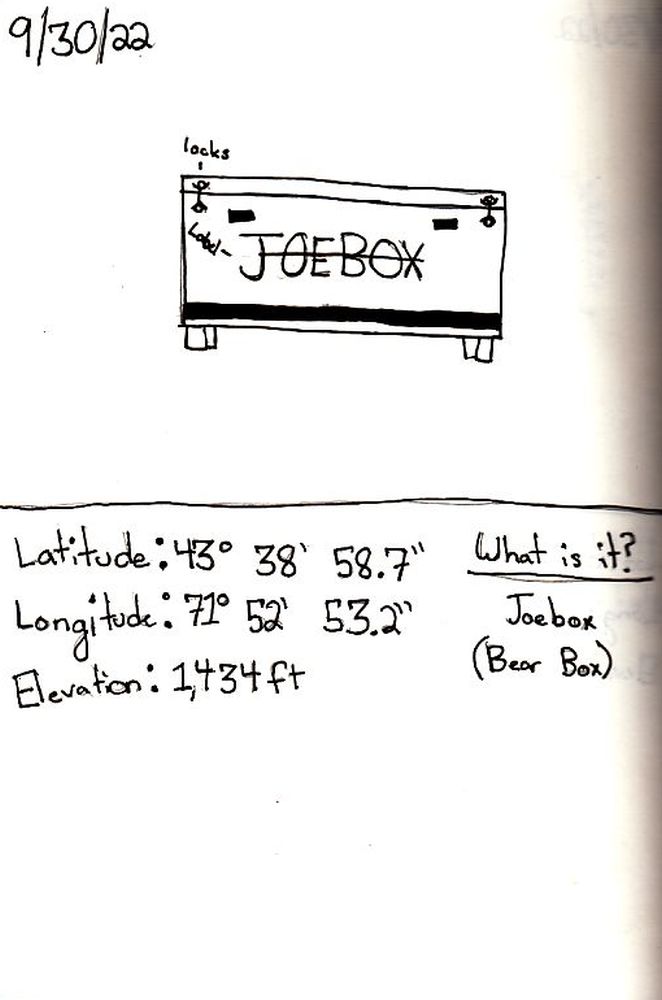 9/30/22
locks
Label
JOEBOX
Latitude: 43° 38' 58.7"
What is it?
Longitude: 71° 52' 53.2"
Joebox
Elevation: 1,434 ft
(Bear Box)